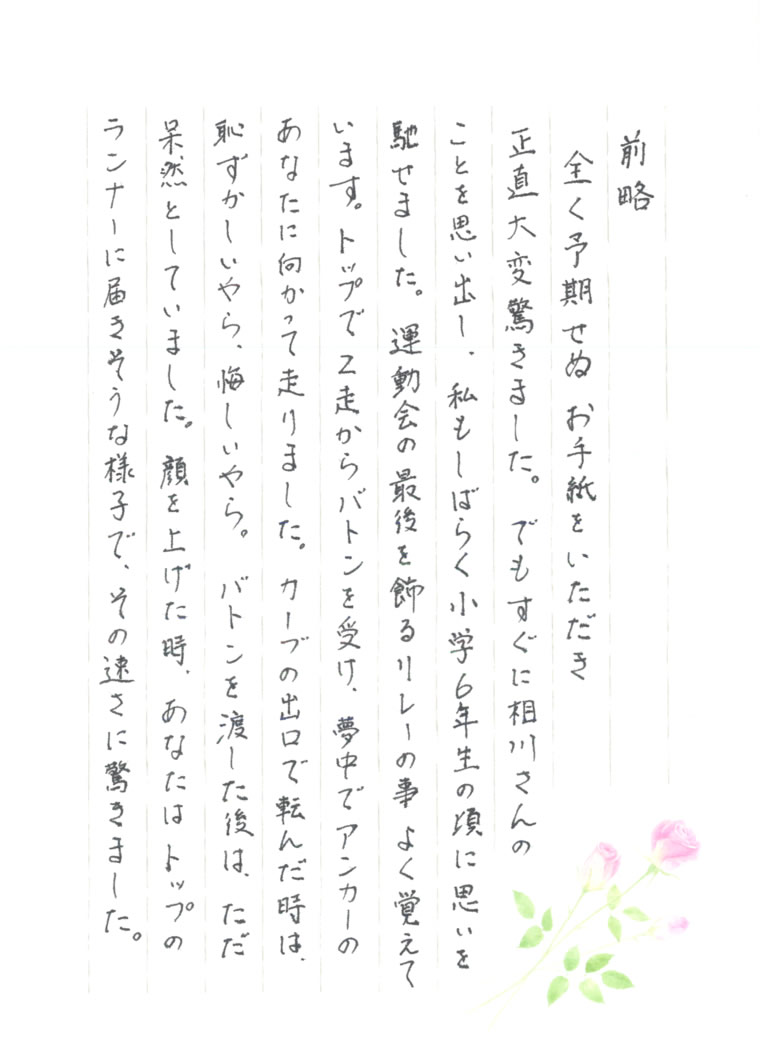 前略
全く予期せぬお手紙をいただき
正直大変驚きました。でもすぐに相川さんの
ことを思い出し、私もしばらく小学6年生の頃に思いを
馳せました。運動会の最後を飾るリレーの事 よく覚えて
います。トップで2走からバトンを受け、夢中でアンカーの
あなたに向かって走りました。カーブの出口で転んだ時は、
恥ずかしいやら、悔しいやら。バトンを渡した後は、ただ
呆然としていました。顔を上げた時、あなたはトップの
ランナーに届きそうな様子で、その速さに驚きました。